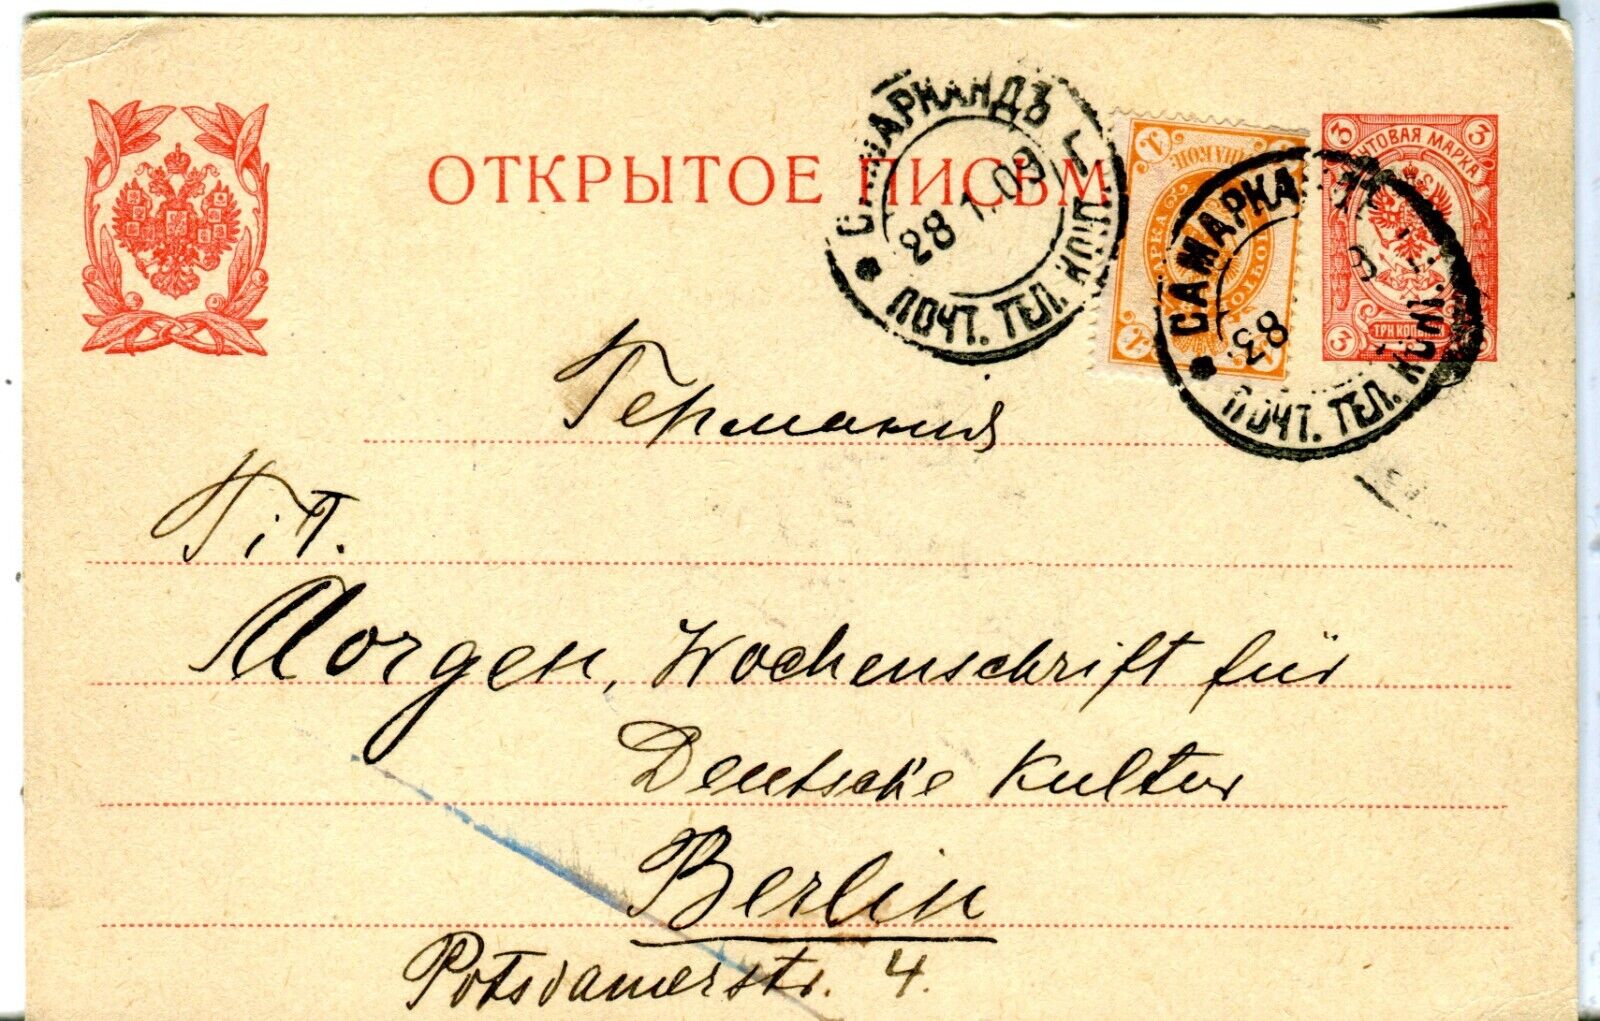 ОТКРЫТОЕ ПИСЬМ
САМАРКАНДЪ
28 1.09
ПОЧТ. ТЕЛ. КОН.
1
МАРКА
1
3 ПОЧТОВАЯ МАРКА 3
3 ТРИ КОП
САМАРКА
28
ПОЧТ. ТЕЛ. КОН.
Германия
Morgen, Wochenschrift für
Deutsche Kultur
Berlin
Potsdamerstr. 4.